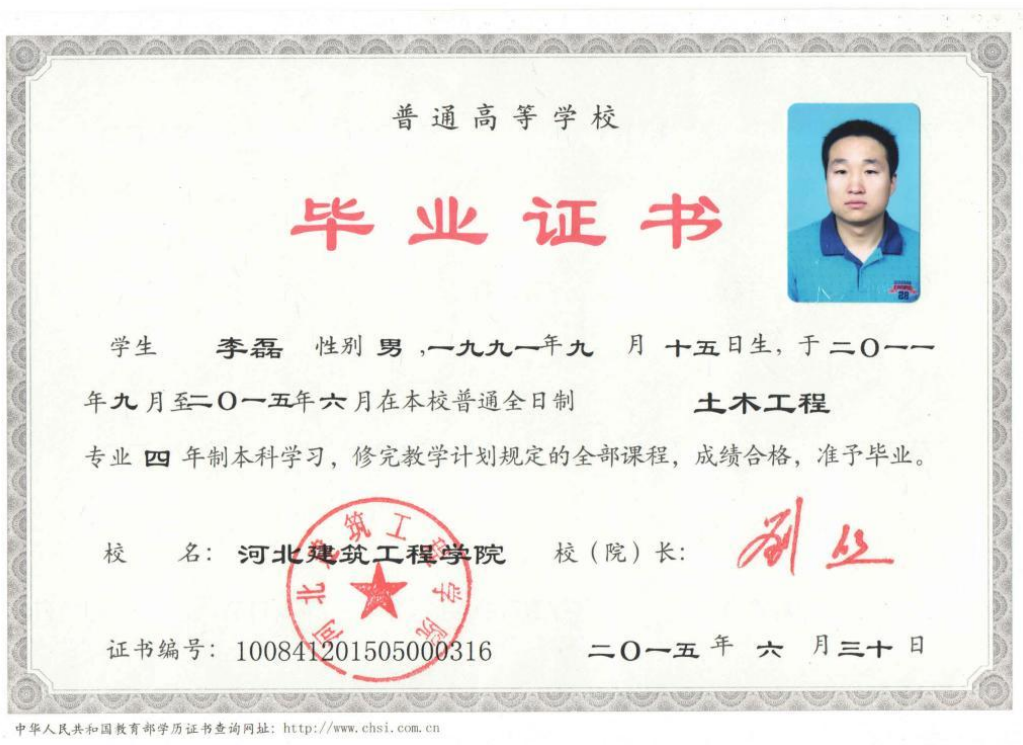 普通高等学校
毕业证书
学生 李磊 性别 男 ,一九九一年九 月 十五日生，于 二〇一一
年九月至二〇一五年六月在本校普通全日制 土木工程
专业 四 年制本科学习，修完教学计划规定的全部课程，成绩合格，准予毕业。
校 名：河北建筑工程学院 校（院）长：
河北建筑工程学院
证书编号：100841201505000316 二〇一五 年 六 月三十日
中华人民共和国教育部学历证书查询网址：http://www.chsi.com.cn